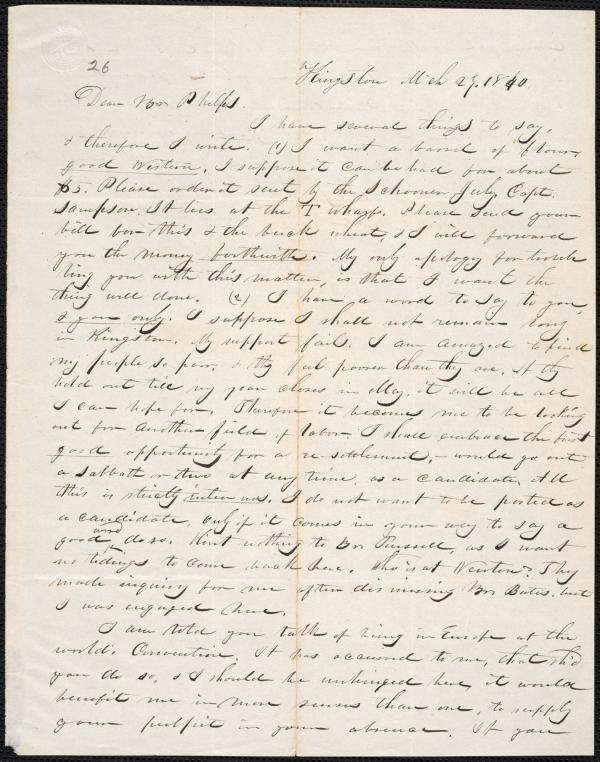 26
Kingston Mch 29. 1840.
Dear Bro Phelps.
I have several things to say,
& therefore I write. (1) I want a barrel of flour,
good Western. I suppose it can be had for about
$5. Please order it sent by the Schooner July, Capt.
Sampson. It lies at the T wharf. Please send your
bill for this & the buck wheat, & I will forward
you the money forthwith. My only apology for troub
ling you with this matter, is that I want the
thing well done. (2) I have a word to say to you,
& you only. I suppose I shall not remain long
in Kingston. My support fails. I am amazed to find
my people so poor, & thy feel poorer than they are. If thy
hold out till my year closes in May, it will be all
I can hope for. Therefore it becomes me to be looking
out for another field of labor. I shall embrace the first
good opportunity for a re-settlement, - would go out
a sabbath or two at any time, as a candidate. All
this is strictly inter nos. I do not want to be posted as
a candidate, only if it comes in your way to say a
good word, do so. Hint nothing to Bro Russell, as I want
no tidings to come back here. Who is at Newton? They
made inquiry for me after dismissing Bro Bates, but
I was engaged here.
I am told you talk of being in Europe at the
world's Convention. It has occurred to me, that shd
you do so, & I should be unhinged here, it would
benefit me in more senses than one, to supply
your pulpit in your absence. If you